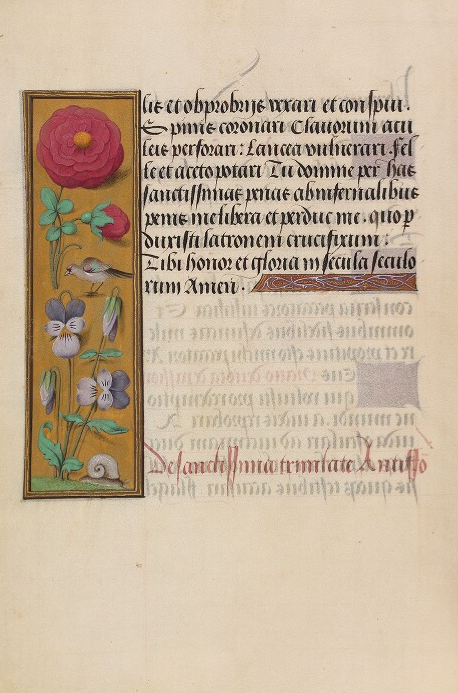 lis et obprobrijs vexari et conspui.
Spinis coronari Clauorum acu
leis perforari: Lancea vulnerari. fel
le et aceto potari Tu domine per has
sanctissimas penas ab infernalibus
penis me libera et perduc me. quo p
duxisti latronem crucifixum:
Tibi honor et gloria in secula seculo
rum Amen:
De sanctissima trinitate Antiffo